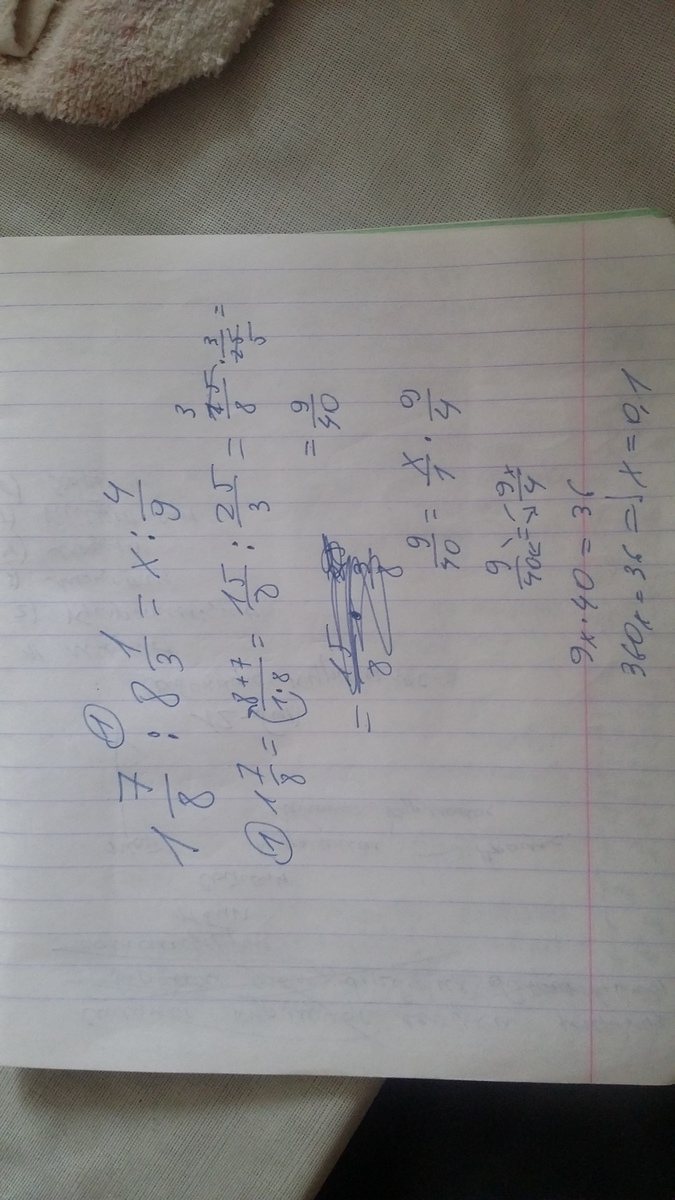 ①
1 7/8 : 8 1/3 = x : 4/9
① 1 7/8 = (8+7)/(1·8) = 15/8 : 25/3 = 15/8 · 3/25 =
3
5
= 9/40
= 15/8 · 3
9/40 = x/1 · 9/4
9/40 = 9x/4
9x·40 = 36
360x = 36 => x = 0,1